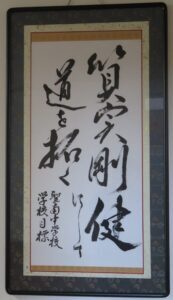 質実剛健
にして
道を拓く
聖南中学校
学校目標